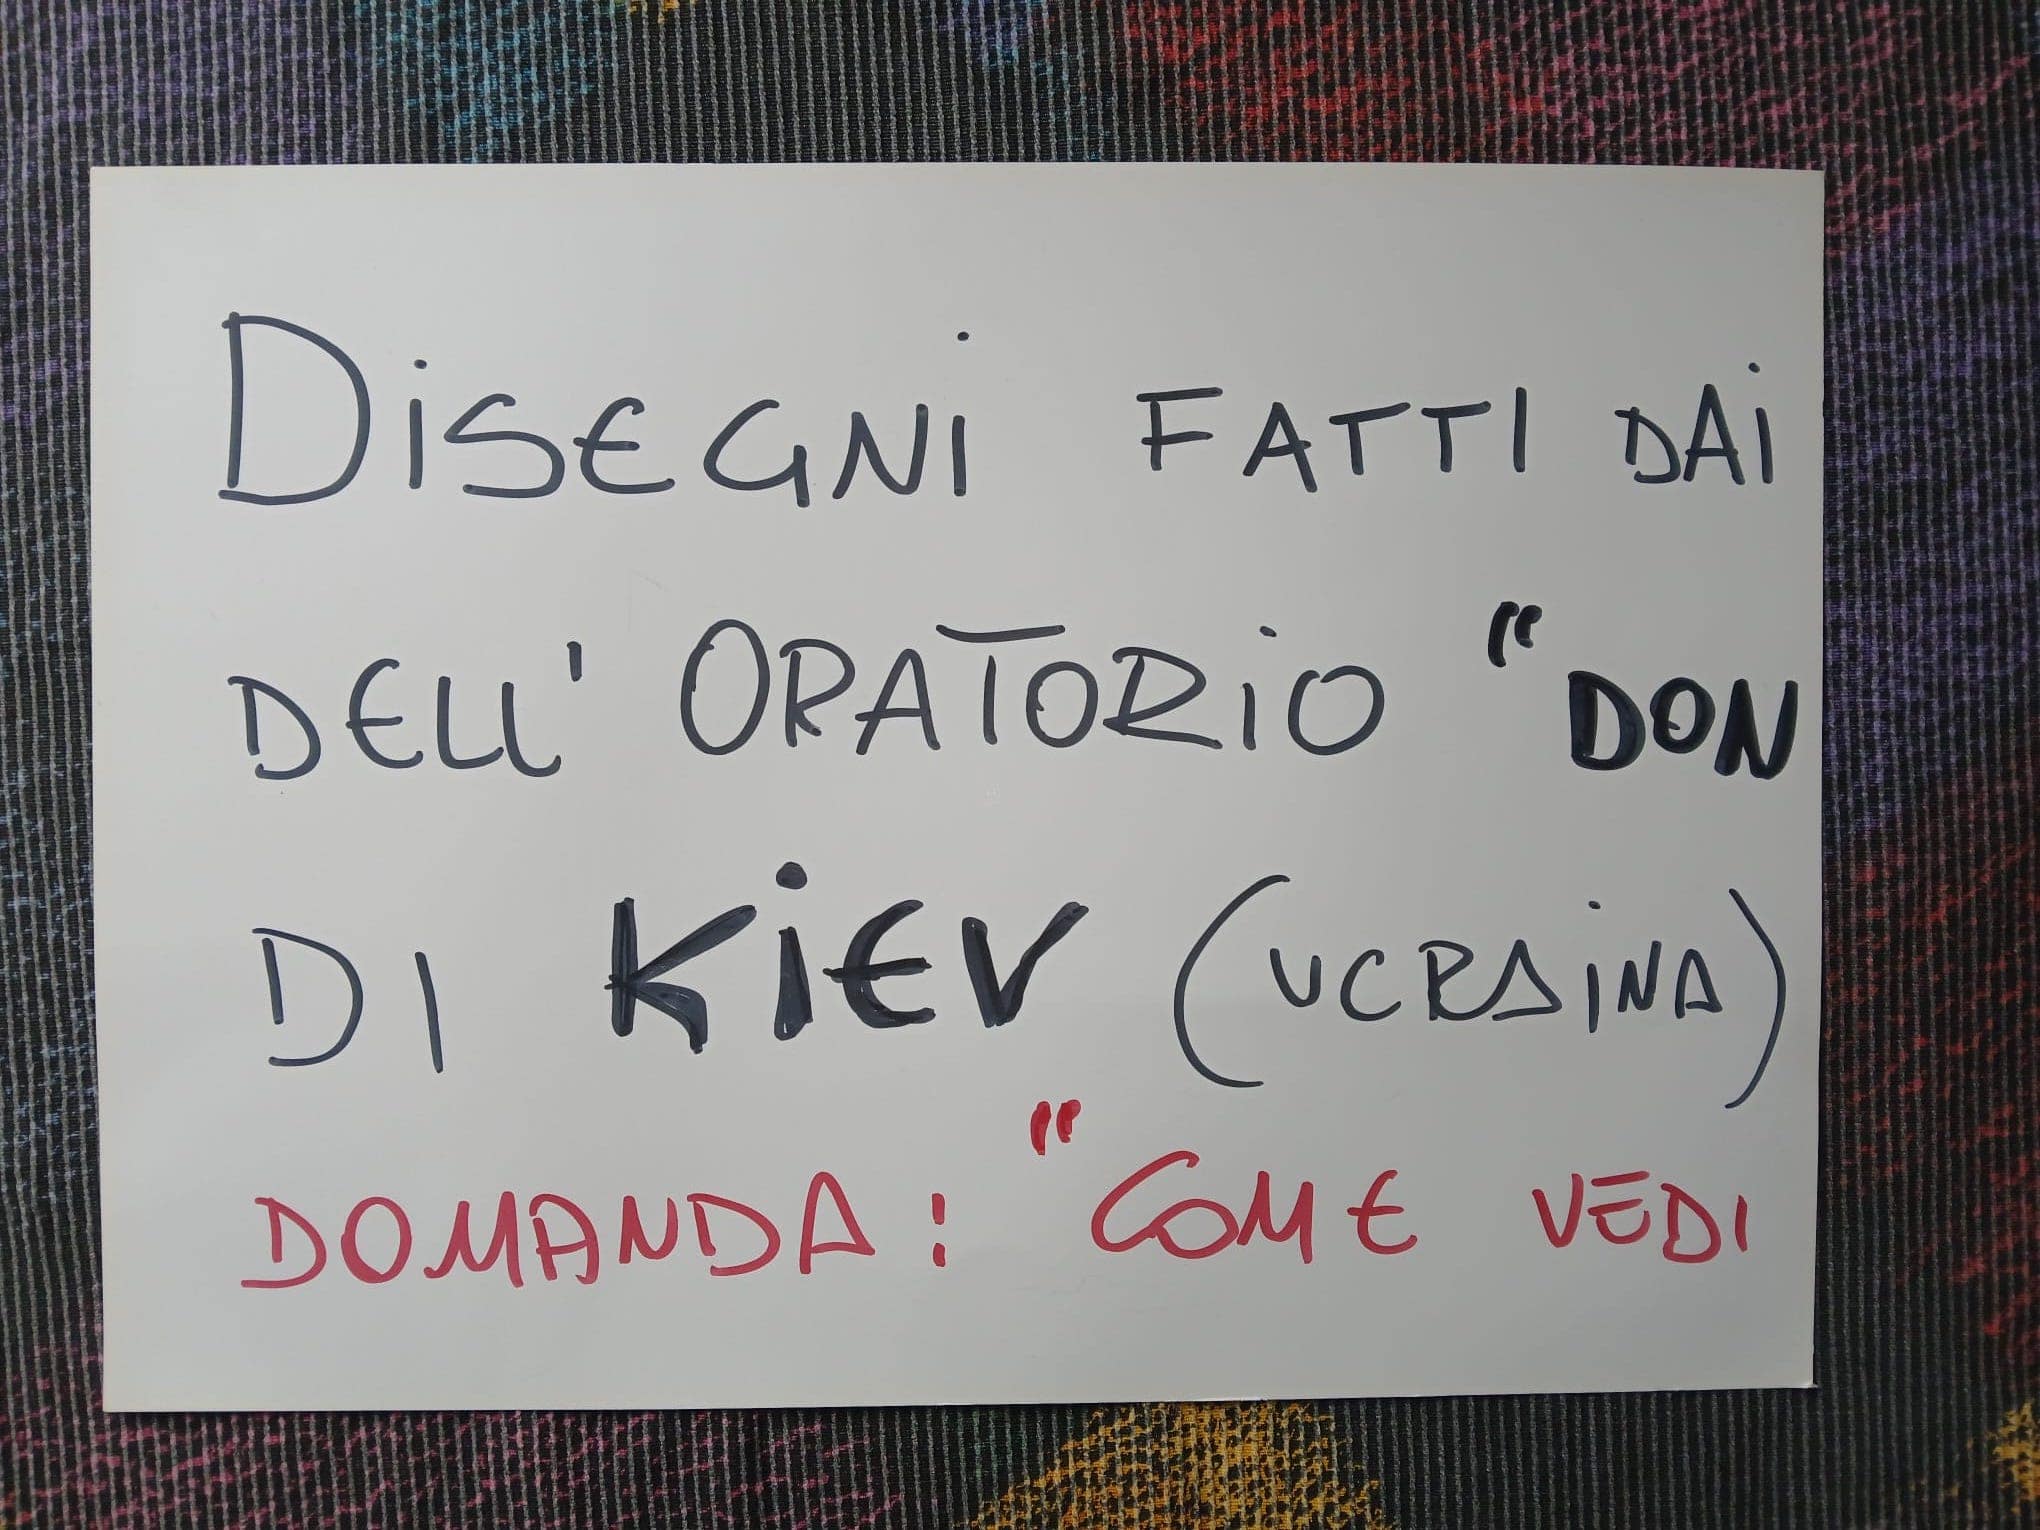 DiSEGNi FATTI DAi
DELL' ORATORiO "DON
DI KiEV (UCRAiNA)
DOMANDA: "COME VEDI